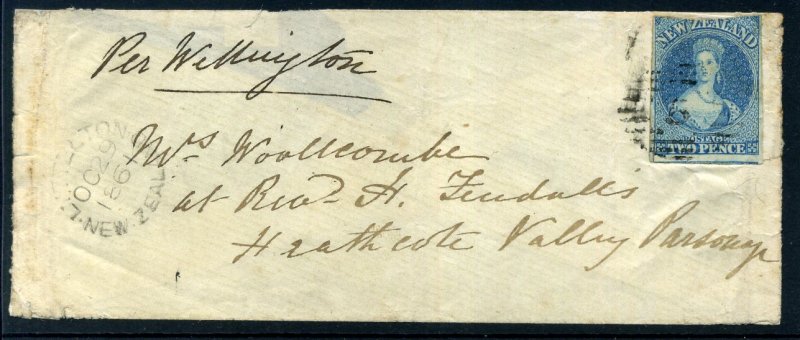 Per Wellington
NEW ZEALAND
POSTAGE
TWO PENCE
OC 29
1861
NEW ZEAL
Mrs Woollcombe
at Revd H. Fendalls
Heathcote Valley Parsonage